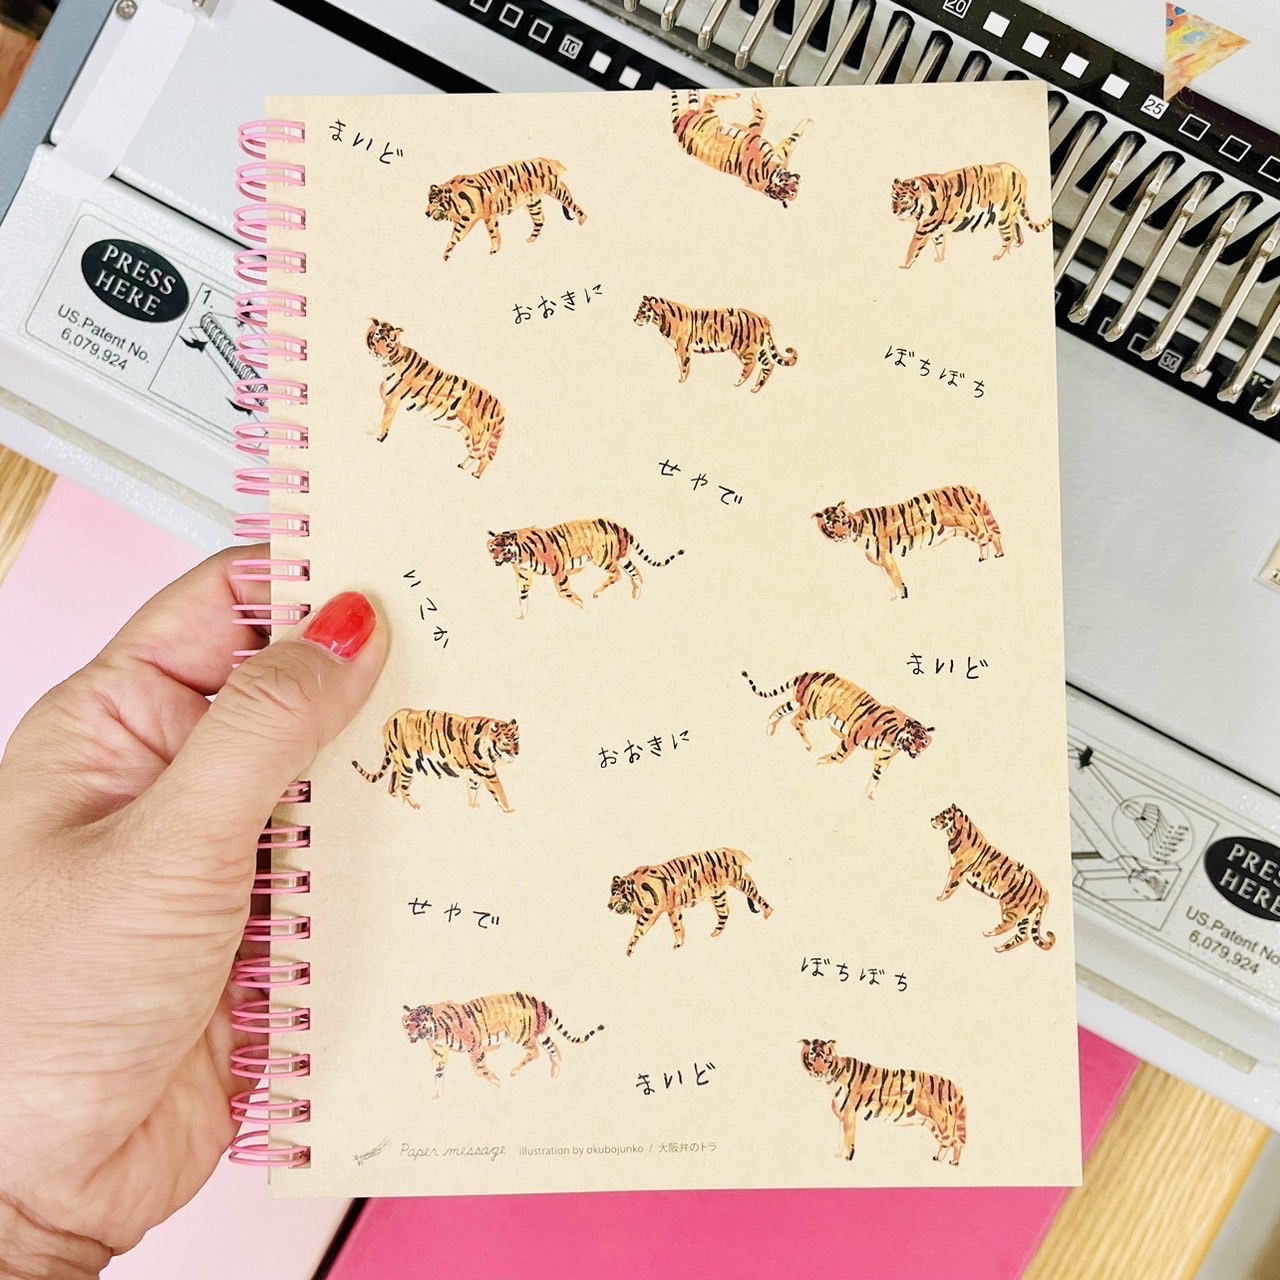 20
10
25
まいど
PRESS
HERE
US.Patent No.
6,079,924
1.
おおきに
ぼちぼち
30
せやで
いこか
まいど
おおきに
PRESS
HERE
US.Patent No.
6,079,924
せやで
ぼちぼち
まいど
Paper message illustration by okubojunko / 大阪弁のトラ